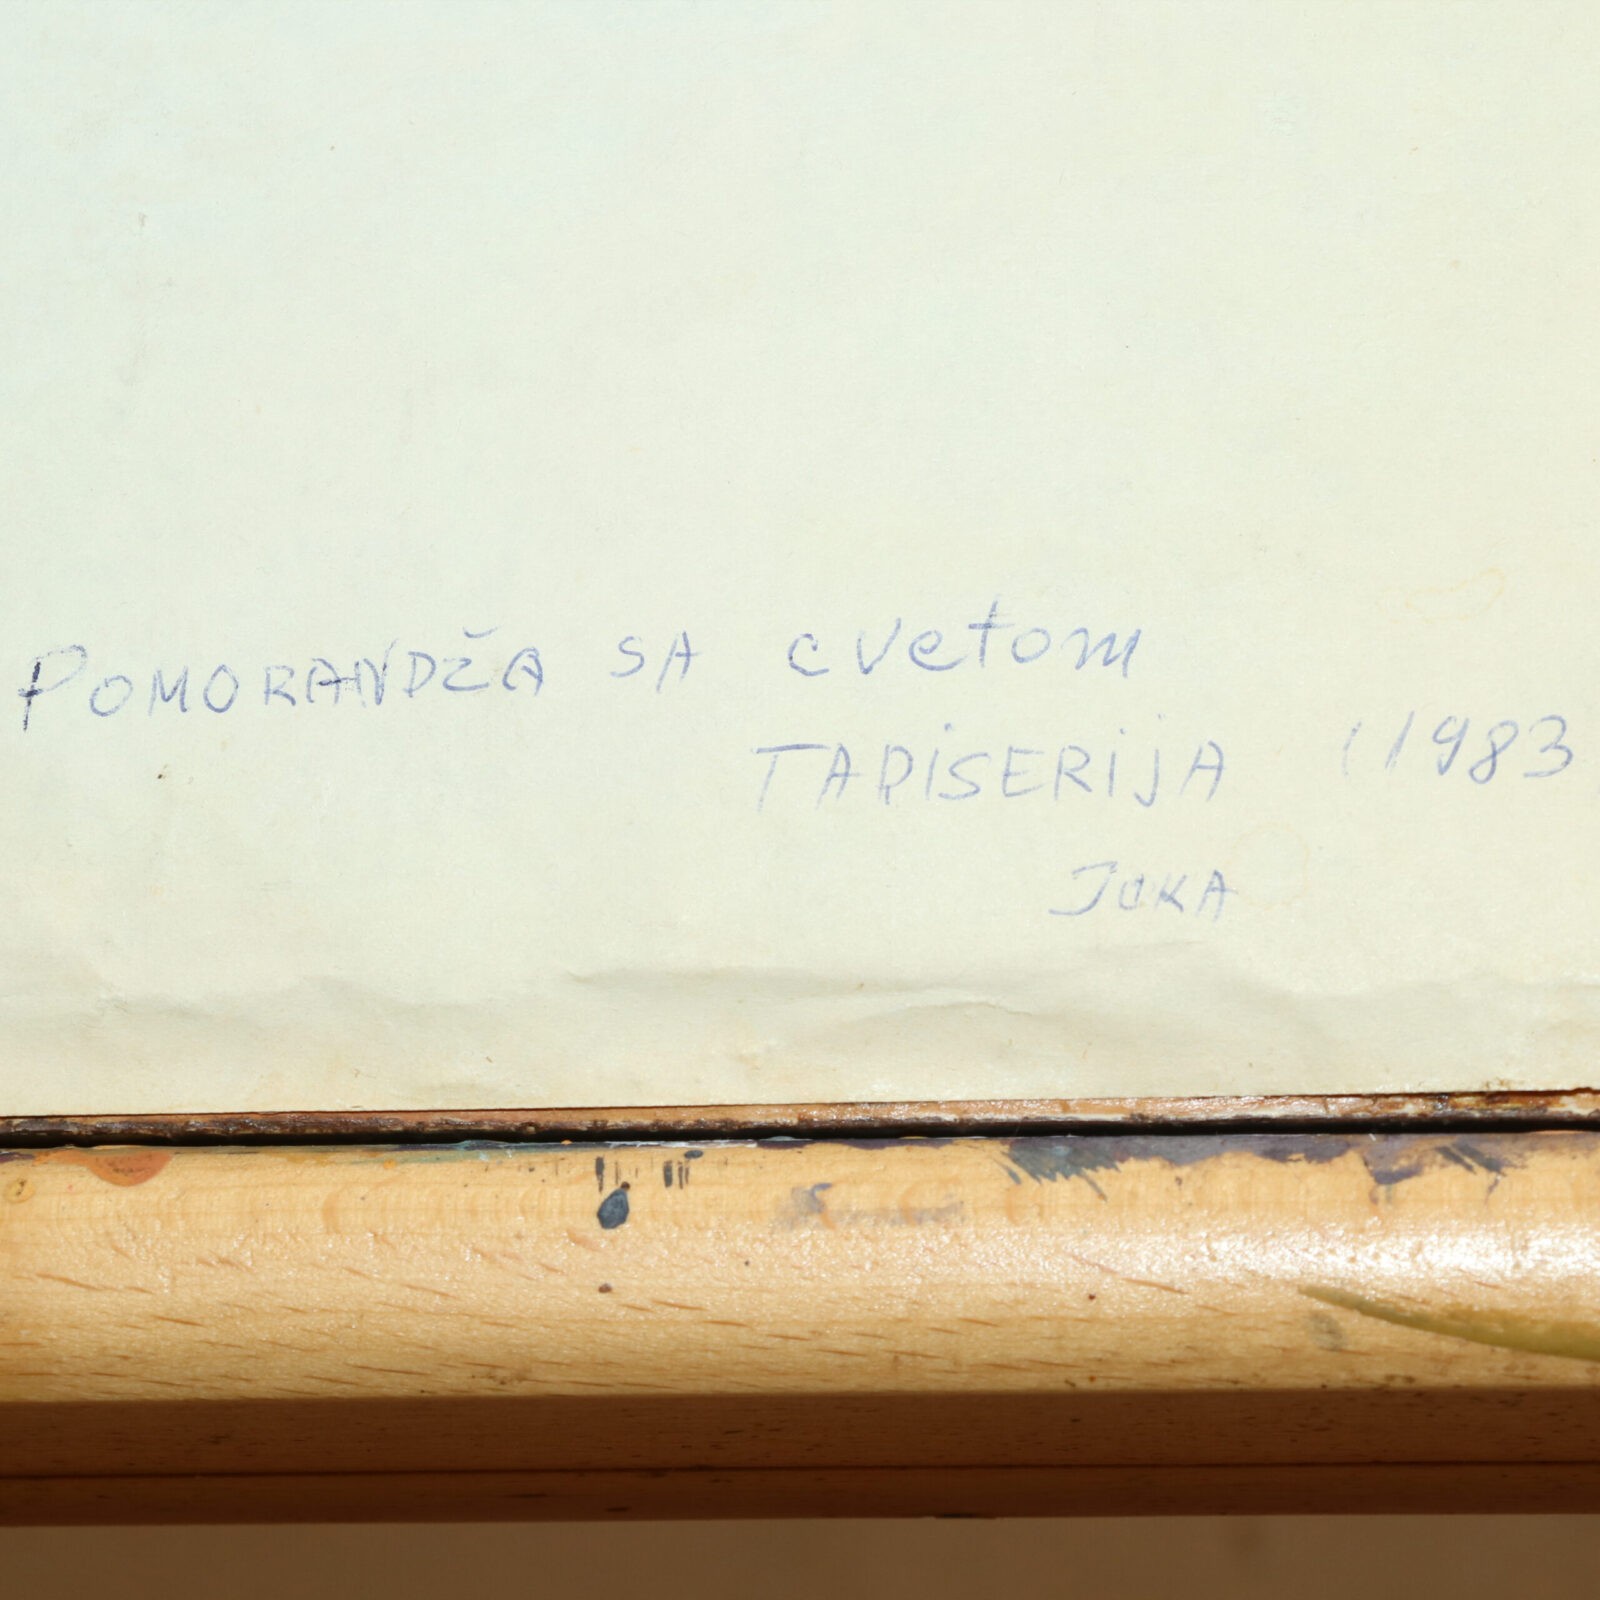 POMORANDŽA SA cvetom
TAPiSERiJA (1983
JOKA